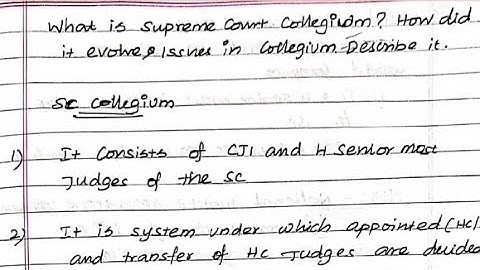 What is supreme Court Collegium? How did
it evolve & Issues in Collegium Describe it.
SC Collegium
1) It Consists of CJI and 4 senior most
Judges of the SC
2) It is system under which appointed (HC)
and transfer of HC Judges are decided